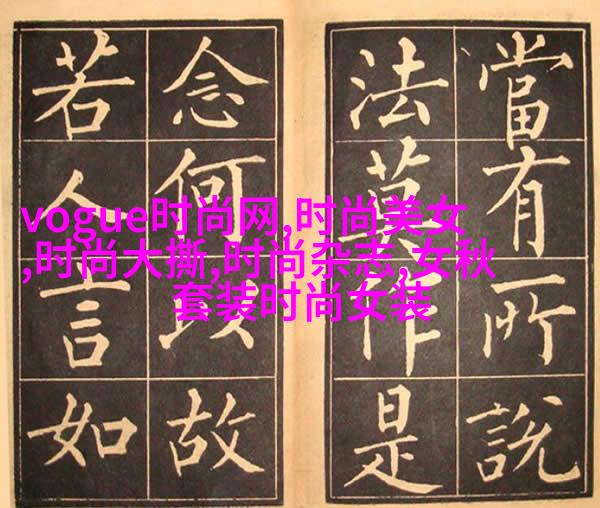 當有所說
法莫作是
念何以故
若人言如
vogue时尚网,时尚美女
,时尚大撕,时尚杂志,女秋
套装时尚女装